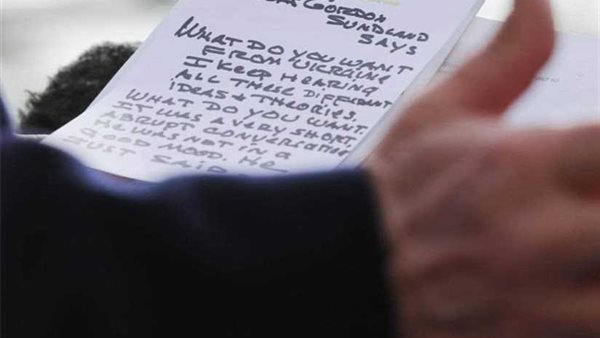 GORDON
SUNDLAND
SAYS
WHAT DO YOU WANT
FROM UKRAINE
I KEEP HEARING
ALL THESE DIFFERENT
IDEAS & THEORIES.
WHAT DO YOU WANT.
IT WAS A VERY SHORT,
ABRUPT CONVERSATION
HE WAS NOT IN A
GOOD MOOD. HE
JUST SAID